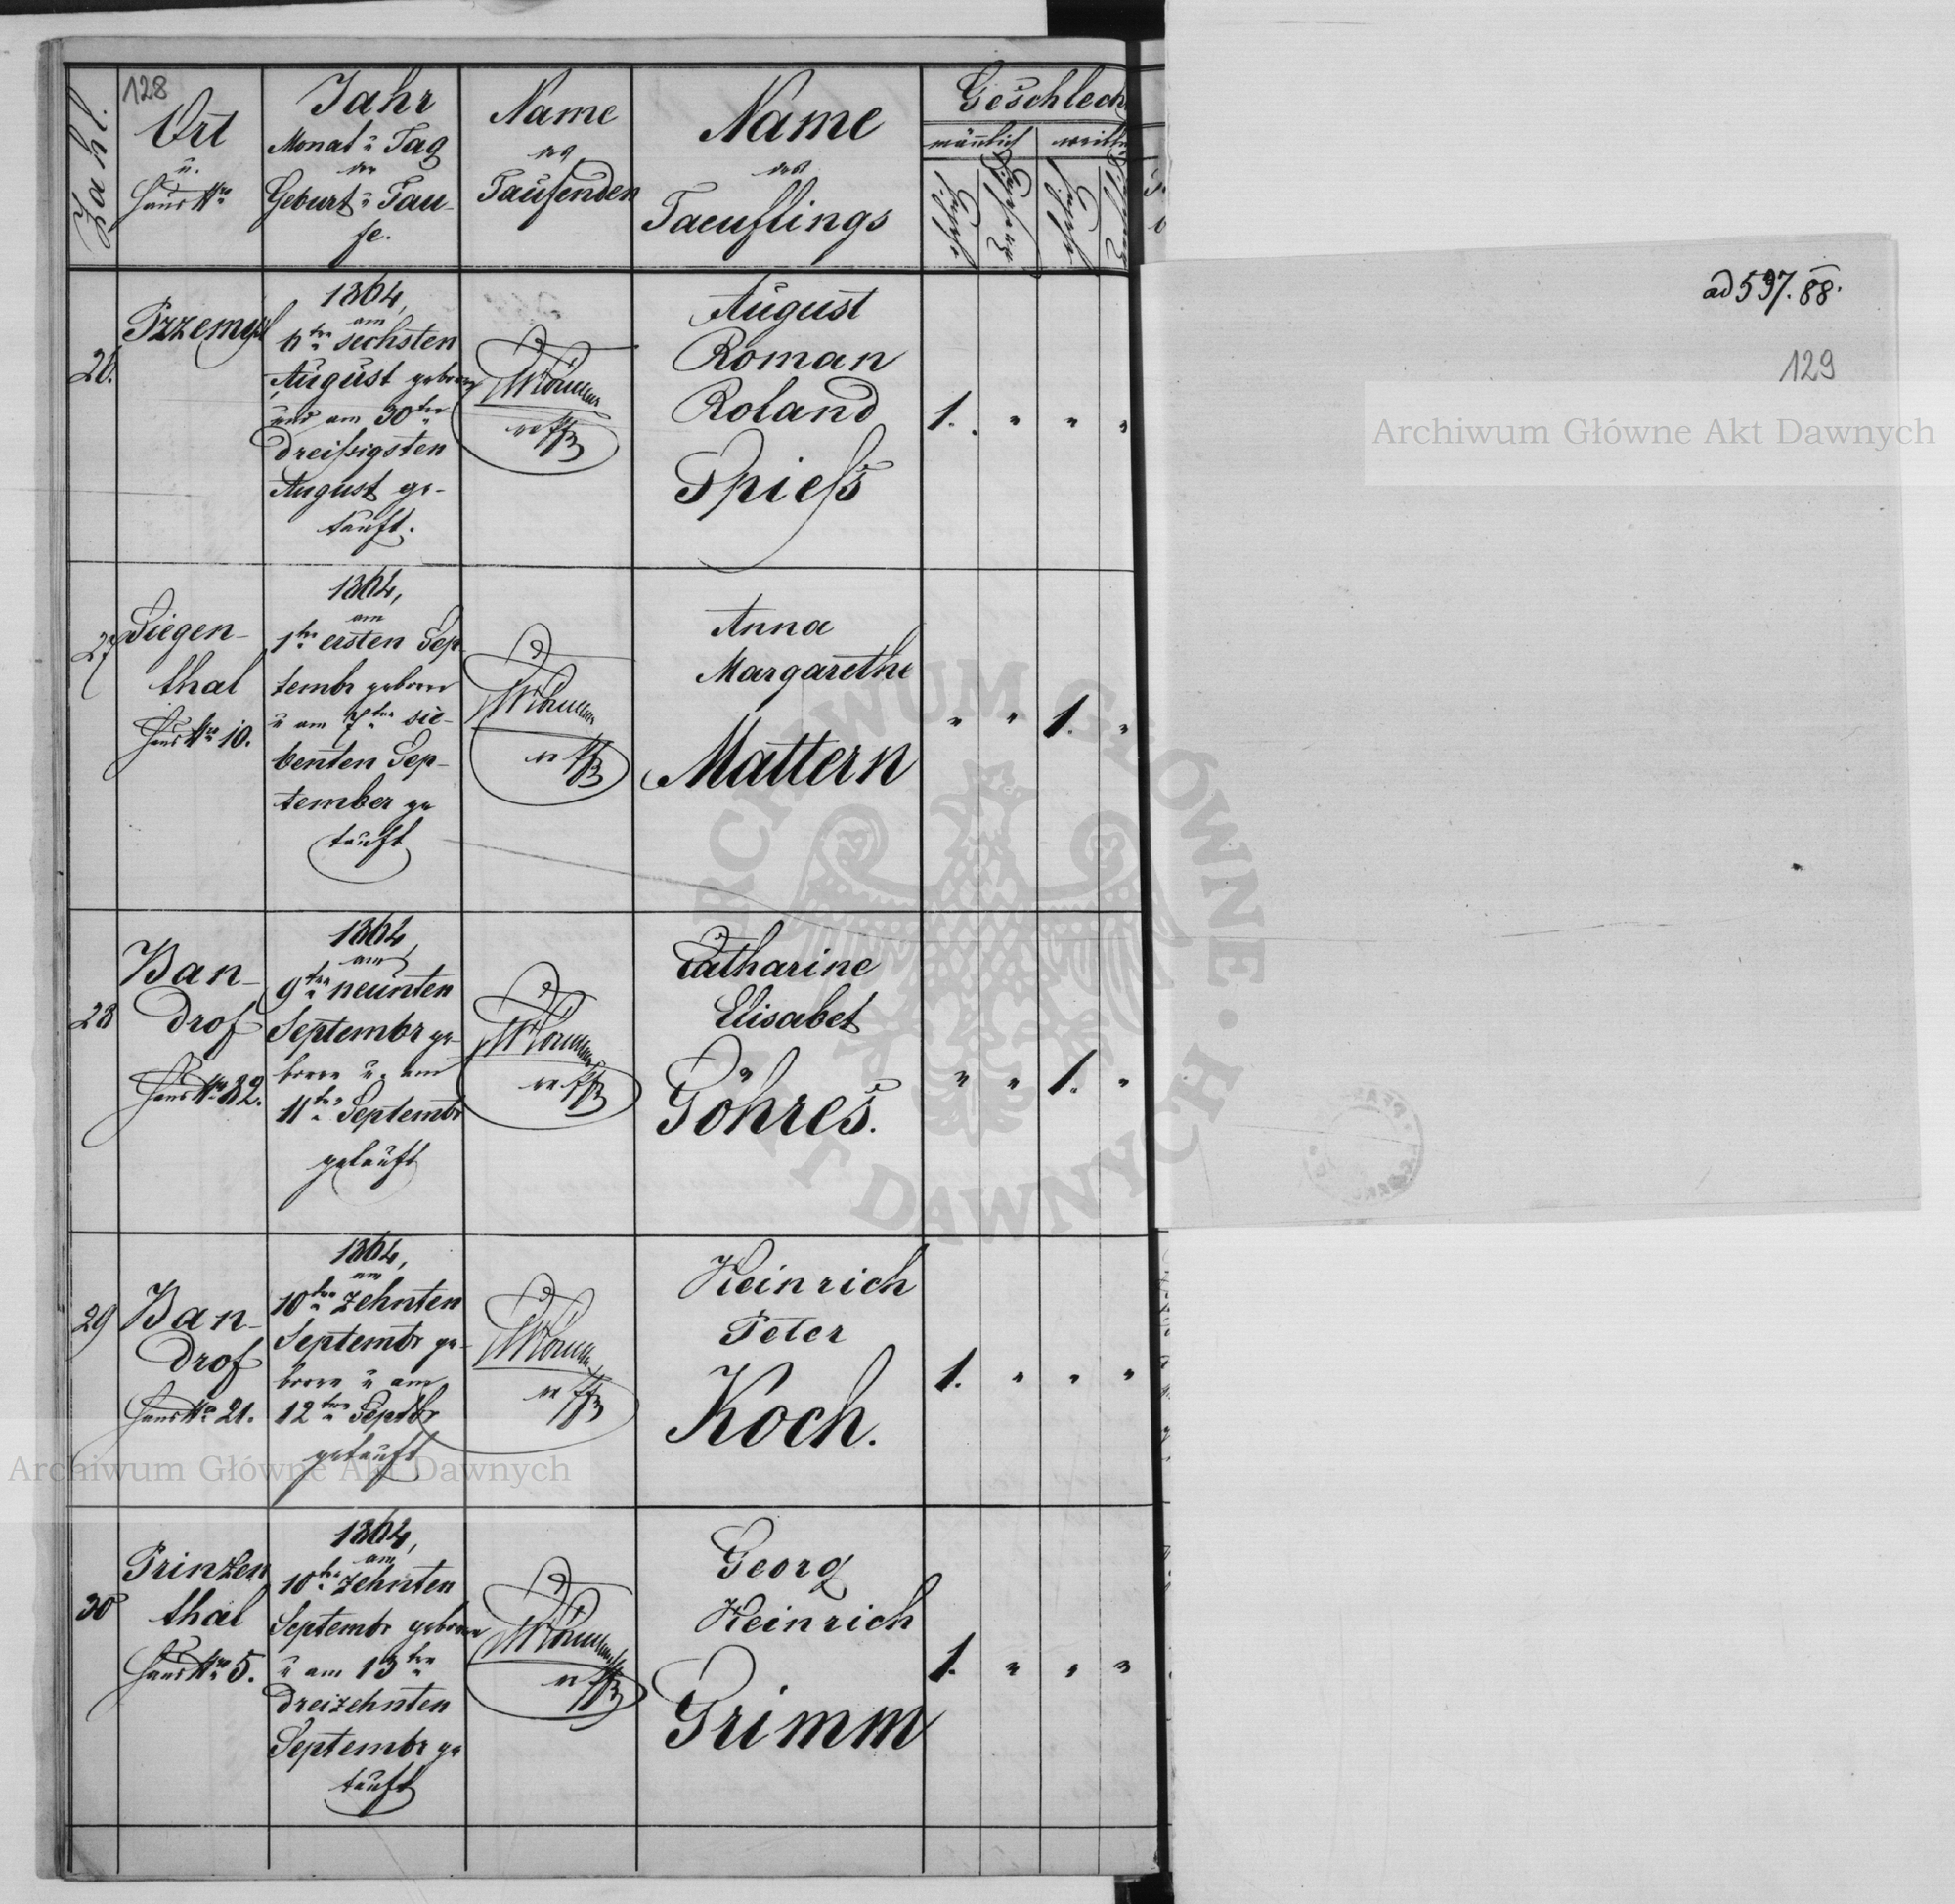 128
Zahl.
Ort
u.
Haus Nro
Jahr
Monat u Tag
der
Geburt u Tau-
fe.
Name
des
Taufenden
Name
des
Taeuflings
Geschlech
mänlich
26.
Przemysl
1864,
am
6ten sechsten
August geboren
und am 30ten
dreißigsten
August ge-
tauft.
August
Roman
Roland
Spieß
1. " " "
27
Siegen-
thal
Haus Nro 10.
1864,
am
1ten ersten Sep-
tembr geboren
u am 7ten sie-
benten Sep-
tember ge
tauft
Anna
Margarethe
Mattern
" " 1. "
28
Ban-
drof
Haus Nro 32.
1864,
am
9ten neunten
Septembr ge-
boren u. am
11ten Septembr
getauft
Catharine
Elisabet
Göhres.
" " 1. "
29
Ban-
drof
Haus Nro 21.
1864,
am
10ten zehnten
Septembr ge-
boren u am
12ten Septbr
getauft
Heinrich
Peter
Koch.
1. " " "
30
Prinzen
thal
Haus Nro 5.
1864,
am
10ten zehnten
Septembr geboren
u am 13ten
dreizehnten
Septembr ge
tauft
Georg
Heinrich
Grimm
1. " " "
ad 597. 88.
129
Archiwum Główne Akt Dawnych
ARCHIWUM GŁÓWNE AKT DAWNYCH
Archiwum Główne Akt Dawnych